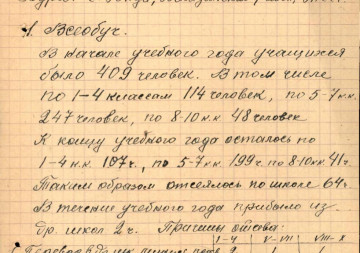 1. Всеобуч.
В начале учебного года учащихся
было 409 человек. В том числе
по 1-4 классам 114 человек, по 5-7 кл.
247 человек, по 8-10 кл. 48 человек
К концу учебного года осталось по
1-4 кл. 107 ч., по 5-7 кл. 199 ч. по 8-10 кл. 41 ч.
Таким образом отсеялось по школе 64 ч.
В течение учебного года прибыло из
др. школ 2 ч. Причины отсева:
I-IV V-VII VIII-X